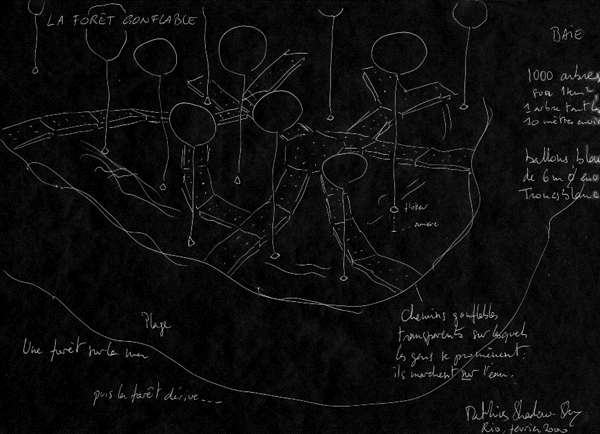 LA FORÊT GONFLABLE
BAIE
1000 arbres
sur 1km²
1 arbre tout les
10 mètres
ballons
de 6m
Troncs
flotteur
Chemins gonflables
transparents sur lesquels
les gens se promènent.
ils marchent sur l'eau.
Plage
Une forêt sur la mer
puis la forêt dérive...
Rio, février 2000